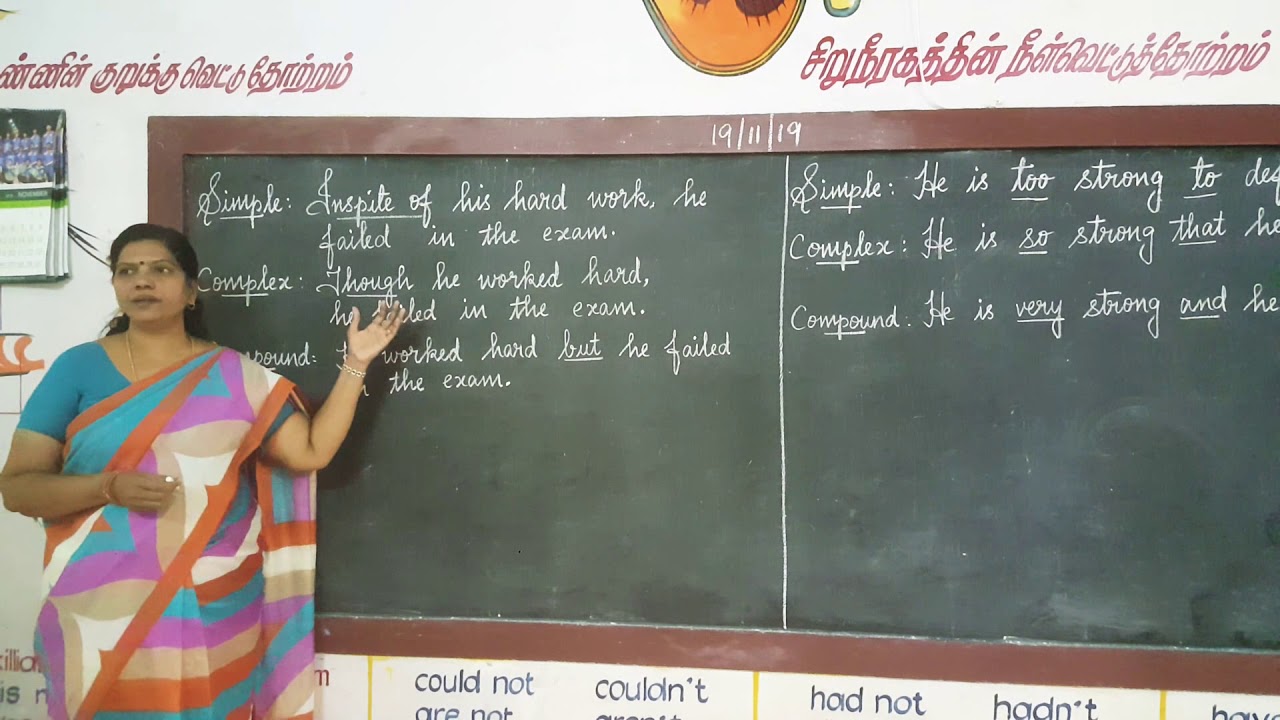 ண்ணின் குறுக்கு வெட்டு தோற்றம்
சிறுநீரகத்தின் நீள்வெட்டுத்தோற்றம்
19/11/19
Simple: Inspite of his hard work, he
failed in the exam.
Complex: Though he worked hard,
he failed in the exam.
pound: worked hard but he failed
the exam.
Simple: He is too strong to
Complex: He is so strong that he
Compound: He is very strong and he
NOVEMBER
could not couldn't
are not aren't
had not hadn't